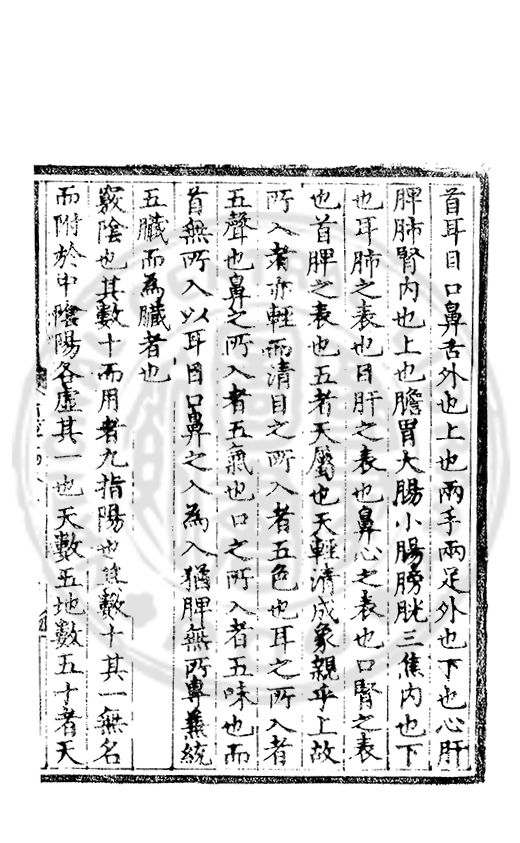 首耳目口鼻舌外也上也兩手兩足外也下也心肝
脾肺腎內也上也膽胃大腸小腸膀胱三焦內也下
也耳肺之表也目肝之表也鼻心之表也口腎之表
也首脾之表也五者天屬也天輕清成象親乎上故
所入者亦輕而清目之所入者五色也耳之所入者
五聲也鼻之所入者五氣也口之所入者五味也而
首無所入以耳目口鼻之入為入猶脾無所專兼統
五臟而為臟者也
竅陰也其數十而用者九指陽也其數十其一無名
而附於中陰陽各虛其一也天數五地數五十者天